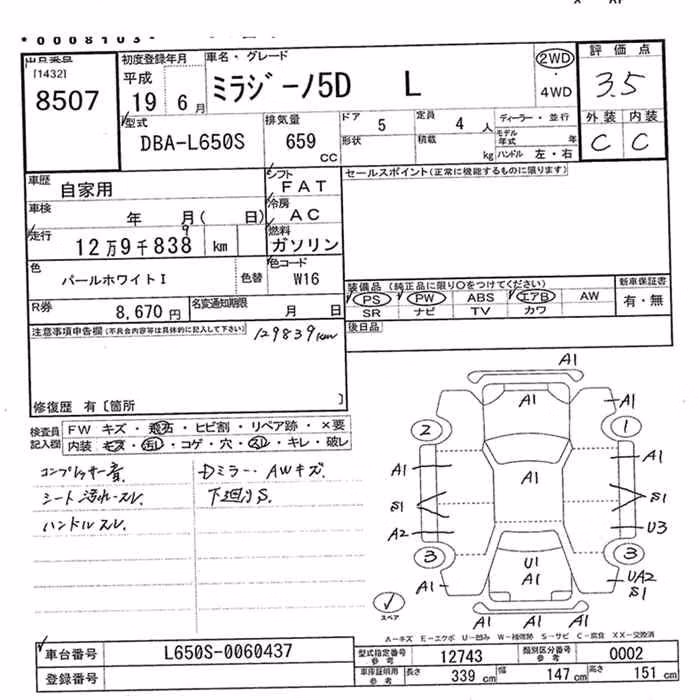 *0008103*
出品番号
[1432]
8507
初度登録年月
平成
19 6月
車名・グレード
ミラジーノ5D L
2WD
・
4WD
評価点
3.5
外装 内装
C C
型式
DBA-L650S
排気量
659
CC
ドア 5
定員 4 人
形状
積載 kg
ディーラー・並行
モデル年式 年
ハンドル 左・右
車歴
自家用
シフト
FAT
セールスポイント(正常に機能するものに限ります)
車検
年 月( 日)
冷房
AC
走行
12万9千838 km
9
燃料
ガソリン
色
パールホワイトI
色替
色コード
W16
装備品(純正品に限り○をつけてください)
PS PW ABS エアB AW
SR ナビ TV カワ
新車保証書
有・無
R券
8,670円
名変通知期限
月 日
後日品
注意事項申告欄(不具合内容等は具体的に記入して下さい)
129839km
修復歴 有〔箇所 〕
検査員記入欄
FW キズ・飛石・ヒビ割・リペア跡・×要
内装 キズ・汚レ・コゲ・穴・スレ・キレ・破レ
コンプレッサー音.
シート汚れ・スレ.
ハンドルスレ.
Dミラー・AWキズ.
下廻りS.
A1
A1 A1
2 1
A1 A1 A1
S1 S1
A2 U3
3 3
U1
A1
A1 UA2
S1
A1 A1 A1
スペア
A-キズ E-エクボ U-凹み W-補修跡 S-サビ C-腐食 XX-交換済
車台番号
L650S-0060437
登録番号
型式指定番号
参考
12743
類別区分番号
参考
0002
車庫証明用
参考
長さ 339 cm
幅 147 cm
高さ 151 cm